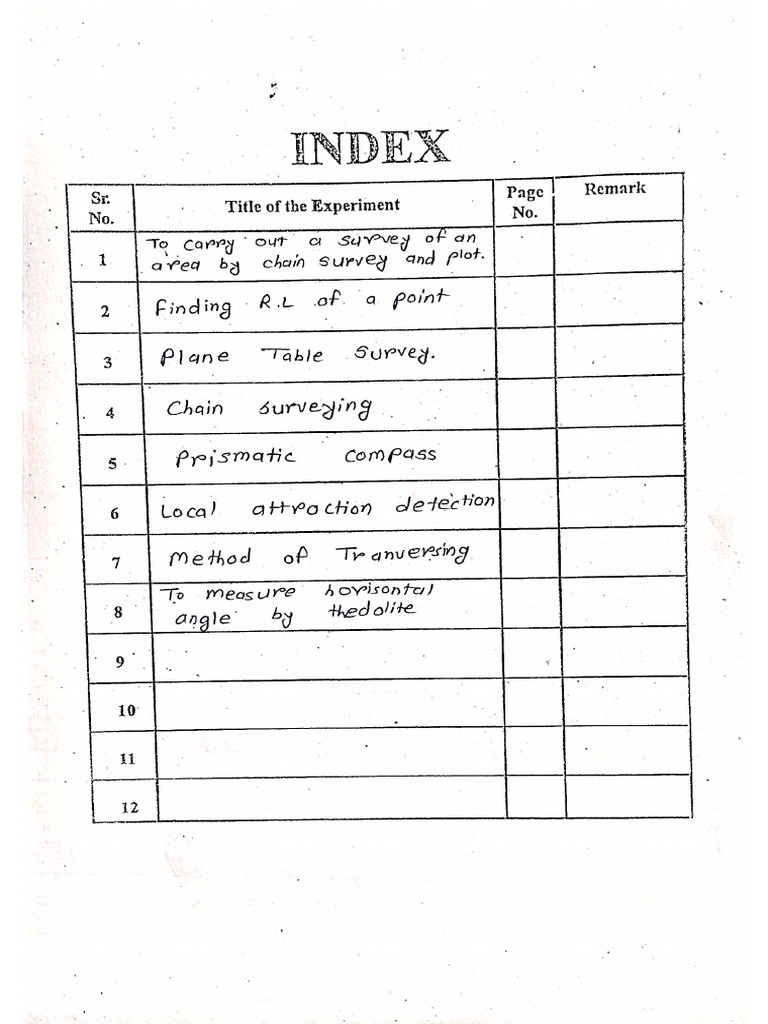 INDEX
Sr. No. Title of the Experiment Page No. Remark
1 To carry out a survey of an
area by chain survey and plot.
2 Finding R.L of a point
3 Plane Table Survey.
4 Chain surveying
5 Prismatic compass
6 Local attraction detection
7 Method of Tranversing
8 To measure horisontal
angle by thedolite
9
10
11
12